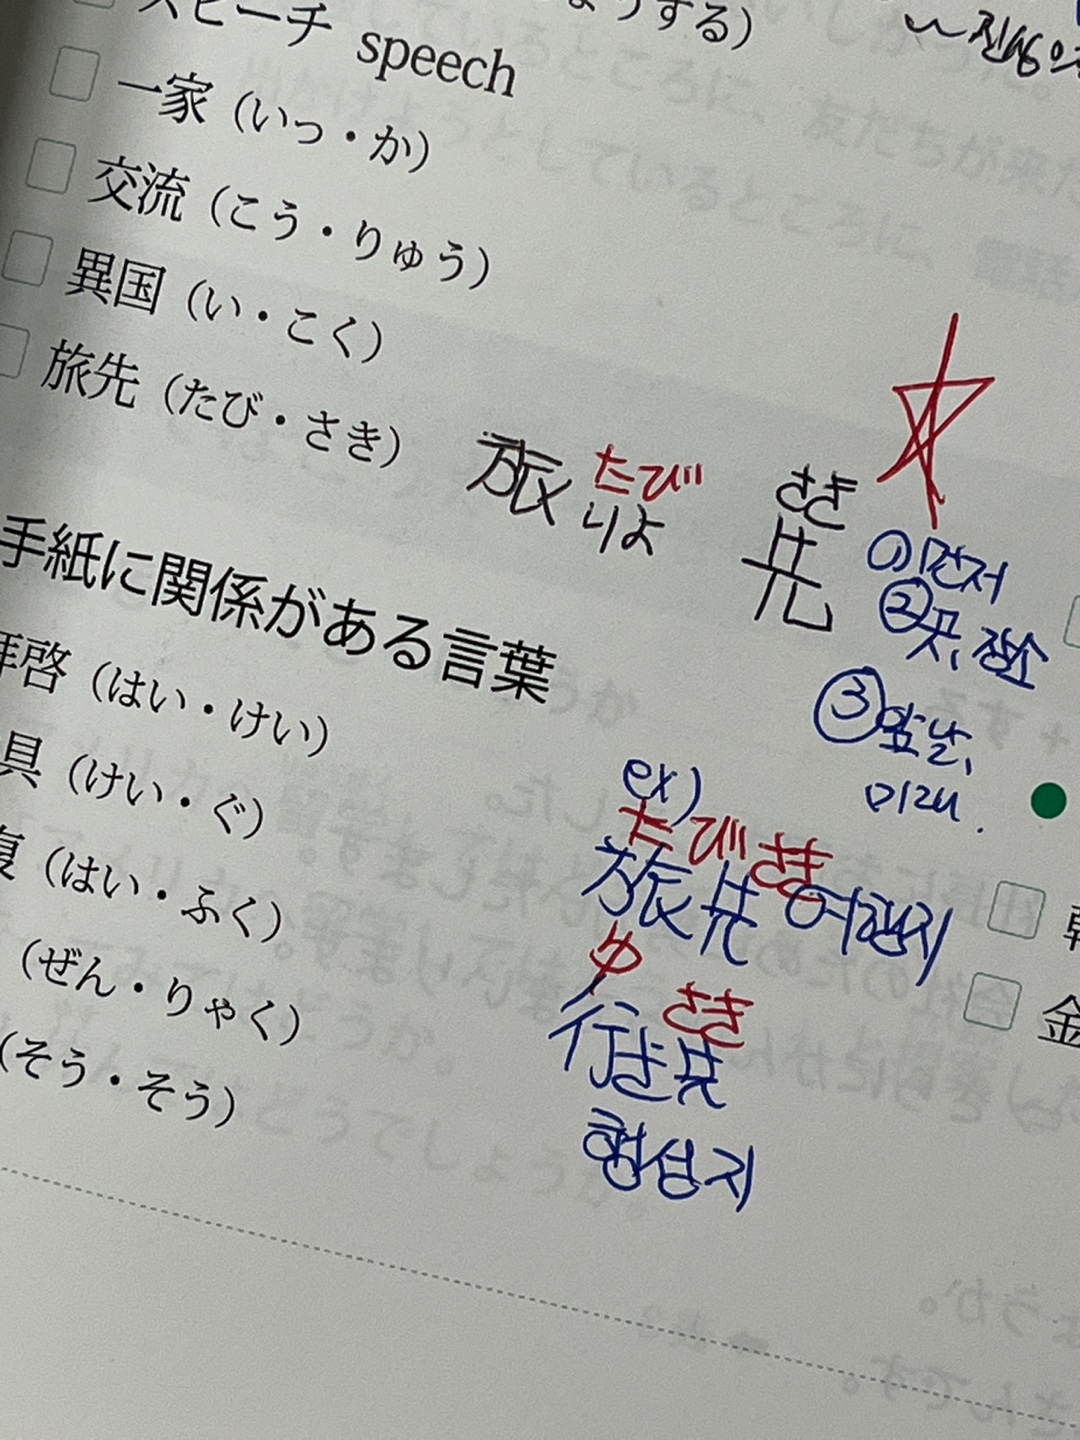 スピーチ speech
ょうする）
一家（いっ・か）
交流（こう・りゅう）
異国（い・こく）
旅先（たび・さき）
旅 たび りよ
さき 先
① 먼저
② 곳, 장소
③ 앞날,
미래.
手紙に関係がある言葉
拝啓（はい・けい）
具（けい・ぐ）
復（はい・ふく）
（ぜん・りゃく）
（そう・そう）
ex)
たび さき
旅先 여행지
ゆ さき
行き先
행선지
金